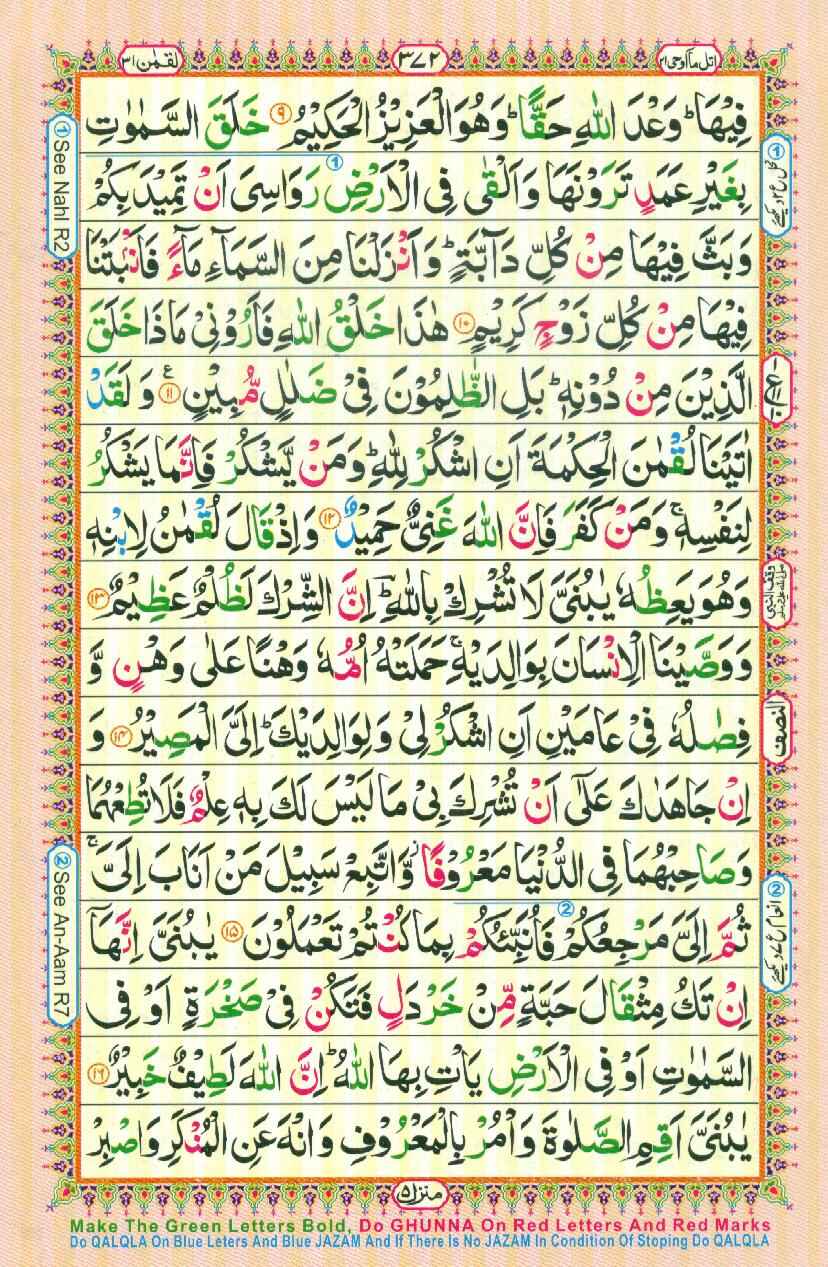 اتل ماۤ اوحی ۲۱
۳۷۲
لقمٰن ۳۱
فِیْهَا ؕ وَعْدَ اللّٰهِ حَقًّا ؕ وَهُوَ الْعَزِیْزُ الْحَكِیْمُ ۹ خَلَقَ السَّمٰوٰتِ
بِغَیْرِ عَمَدٍ تَرَوْنَهَا وَاَلْقٰی فِی الْاَرْضِ رَوَاسِیَ اَنْ تَمِیْدَ بِكُمْ
وَبَثَّ فِیْهَا مِنْ كُلِّ دَآبَّةٍ ؕ وَاَنْزَلْنَا مِنَ السَّمَآءِ مَآءً فَاَنْۢبَتْنَا
فِیْهَا مِنْ كُلِّ زَوْجٍ كَرِیْمٍ ۱۰ هٰذَا خَلْقُ اللّٰهِ فَاَرُوْنِیْ مَاذَا خَلَقَ
الَّذِیْنَ مِنْ دُوْنِهٖ ؕ بَلِ الظّٰلِمُوْنَ فِیْ ضَلٰلٍ مُّبِیْنٍ ۱۱ ع وَلَقَدْ
اٰتَیْنَا لُقْمٰنَ الْحِكْمَةَ اَنِ اشْكُرْ لِلّٰهِ ؕ وَمَنْ یَّشْكُرْ فَاِنَّمَا یَشْكُرُ
لِنَفْسِهٖ ۚ وَمَنْ كَفَرَ فَاِنَّ اللّٰهَ غَنِیٌّ حَمِیْدٌ ۱۲ وَاِذْ قَالَ لُقْمٰنُ لِابْنِهٖ
وَهُوَ یَعِظُهٗ یٰبُنَیَّ لَا تُشْرِكْ بِاللّٰهِ ؔؕ اِنَّ الشِّرْكَ لَظُلْمٌ عَظِیْمٌ ۱۳
وَوَصَّیْنَا الْاِنْسَانَ بِوَالِدَیْهِ ۚ حَمَلَتْهُ اُمُّهٗ وَهْنًا عَلٰی وَهْنٍ وَّ
فِصٰلُهٗ فِیْ عَامَیْنِ اَنِ اشْكُرْ لِیْ وَلِوَالِدَیْكَ ؕ اِلَیَّ الْمَصِیْرُ ۱۴ وَ
اِنْ جَاهَدٰكَ عَلٰۤی اَنْ تُشْرِكَ بِیْ مَا لَیْسَ لَكَ بِهٖ عِلْمٌ فَلَا تُطِعْهُمَا
وَصَاحِبْهُمَا فِی الدُّنْیَا مَعْرُوْفًا ؗ وَّاتَّبِعْ سَبِیْلَ مَنْ اَنَابَ اِلَیَّ ۚ
ثُمَّ اِلَیَّ مَرْجِعُكُمْ فَاُنَبِّئُكُمْ بِمَا كُنْتُمْ تَعْمَلُوْنَ ۱۵ یٰبُنَیَّ اِنَّهَاۤ
اِنْ تَكُ مِثْقَالَ حَبَّةٍ مِّنْ خَرْدَلٍ فَتَكُنْ فِیْ صَخْرَةٍ اَوْ فِی
السَّمٰوٰتِ اَوْ فِی الْاَرْضِ یَاْتِ بِهَا اللّٰهُ ؕ اِنَّ اللّٰهَ لَطِیْفٌ خَبِیْرٌ ۱۶
یٰبُنَیَّ اَقِمِ الصَّلٰوةَ وَاْمُرْ بِالْمَعْرُوْفِ وَانْهَ عَنِ الْمُنْكَرِ وَاصْبِرْ
① See Nahl R2
② See An-Aam R7
النصف
منزل ۵
Make The Green Letters Bold, Do GHUNNA On Red Letters And Red Marks
Do QALQLA On Blue Leters And Blue JAZAM And If There Is No JAZAM In Condition Of Stoping Do QALQLA